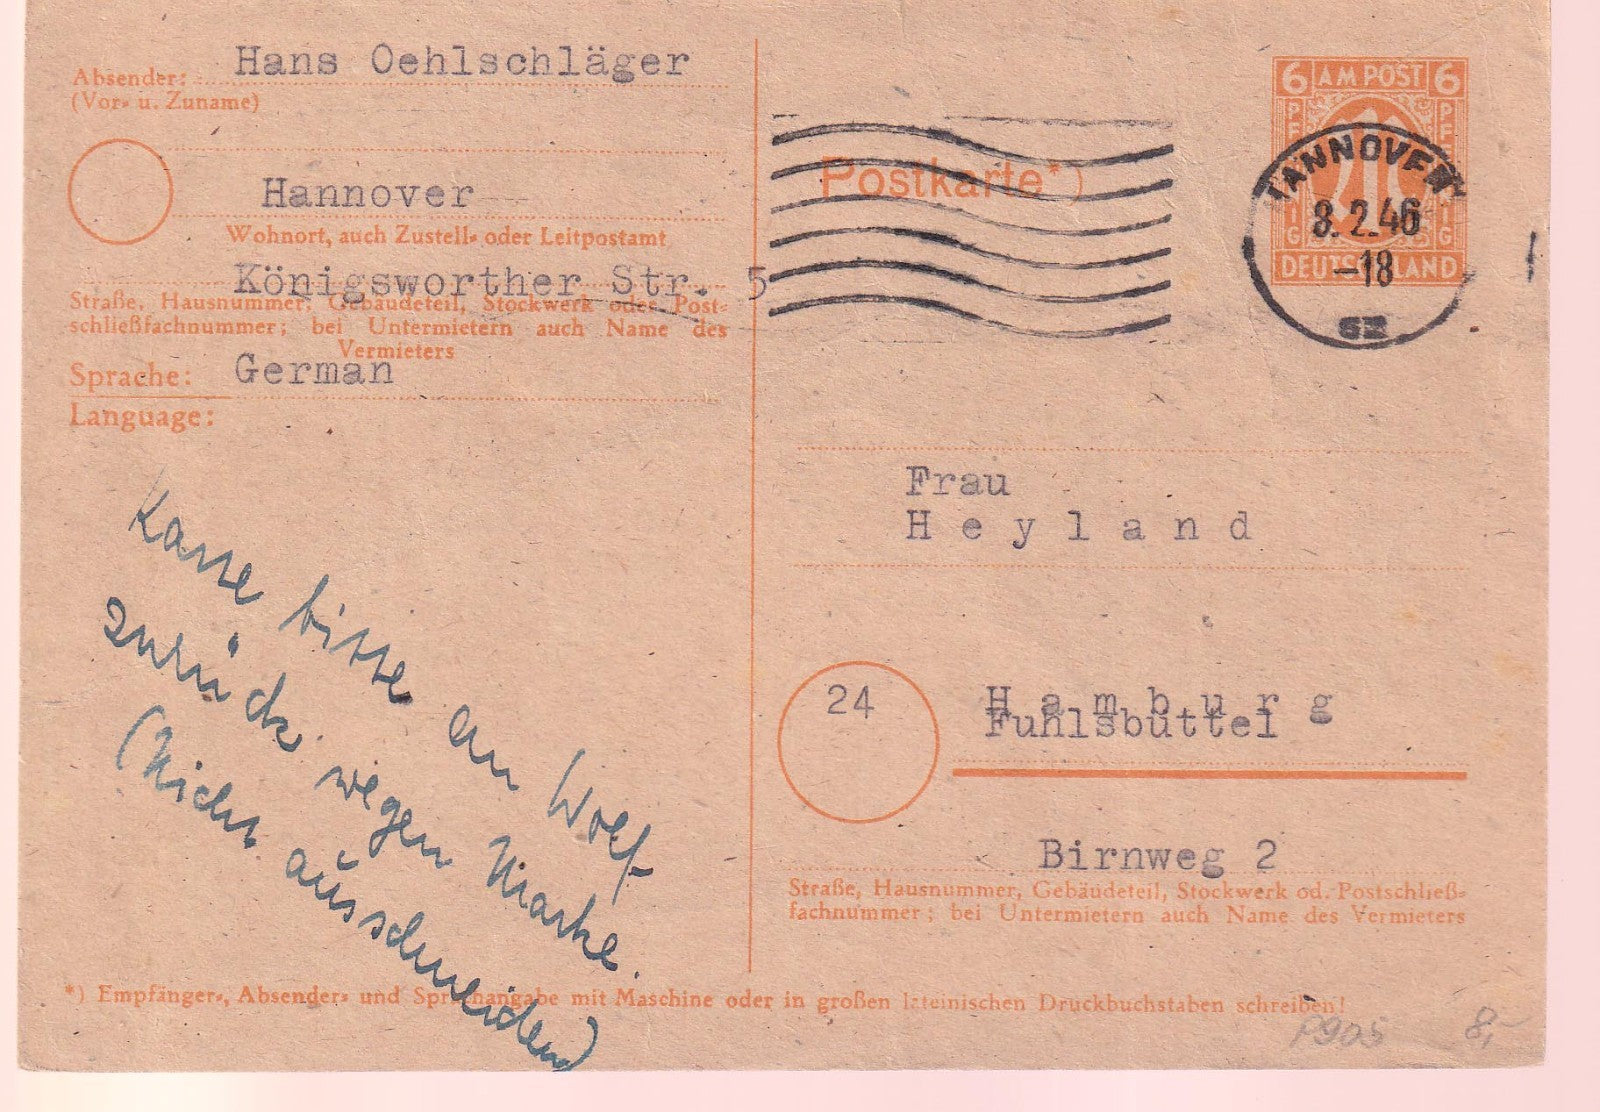 Hans Oehlschläger
Absender:
(Vor- u. Zuname)
Hannover
Wohnort, auch Zustell- oder Leitpostamt
Königsworther Str. 5
Straße, Hausnummer, Gebäudeteil, Stockwerk oder Post-
schließfachnummer; bei Untermietern auch Name des
Vermieters
Sprache: German
Language:
Karte bitte an Wolf
zurück wegen Marke.
(Nicht ausschneiden)
6 AM POST 6
PFENNIG
PFENNIG
DEUTSCHLAND
HANNOVER
8.2.46
-18
Postkarte*)
Frau
Heyland
24
Hamburg
Fuhlsbüttel
Birnweg 2
Straße, Hausnummer, Gebäudeteil, Stockwerk od. Postschließ-
fachnummer; bei Untermietern auch Name des Vermieters
*) Empfänger-, Absender- und Sprachangabe mit Maschine oder in großen lateinischen Druckbuchstaben schreiben!
P905
8,-